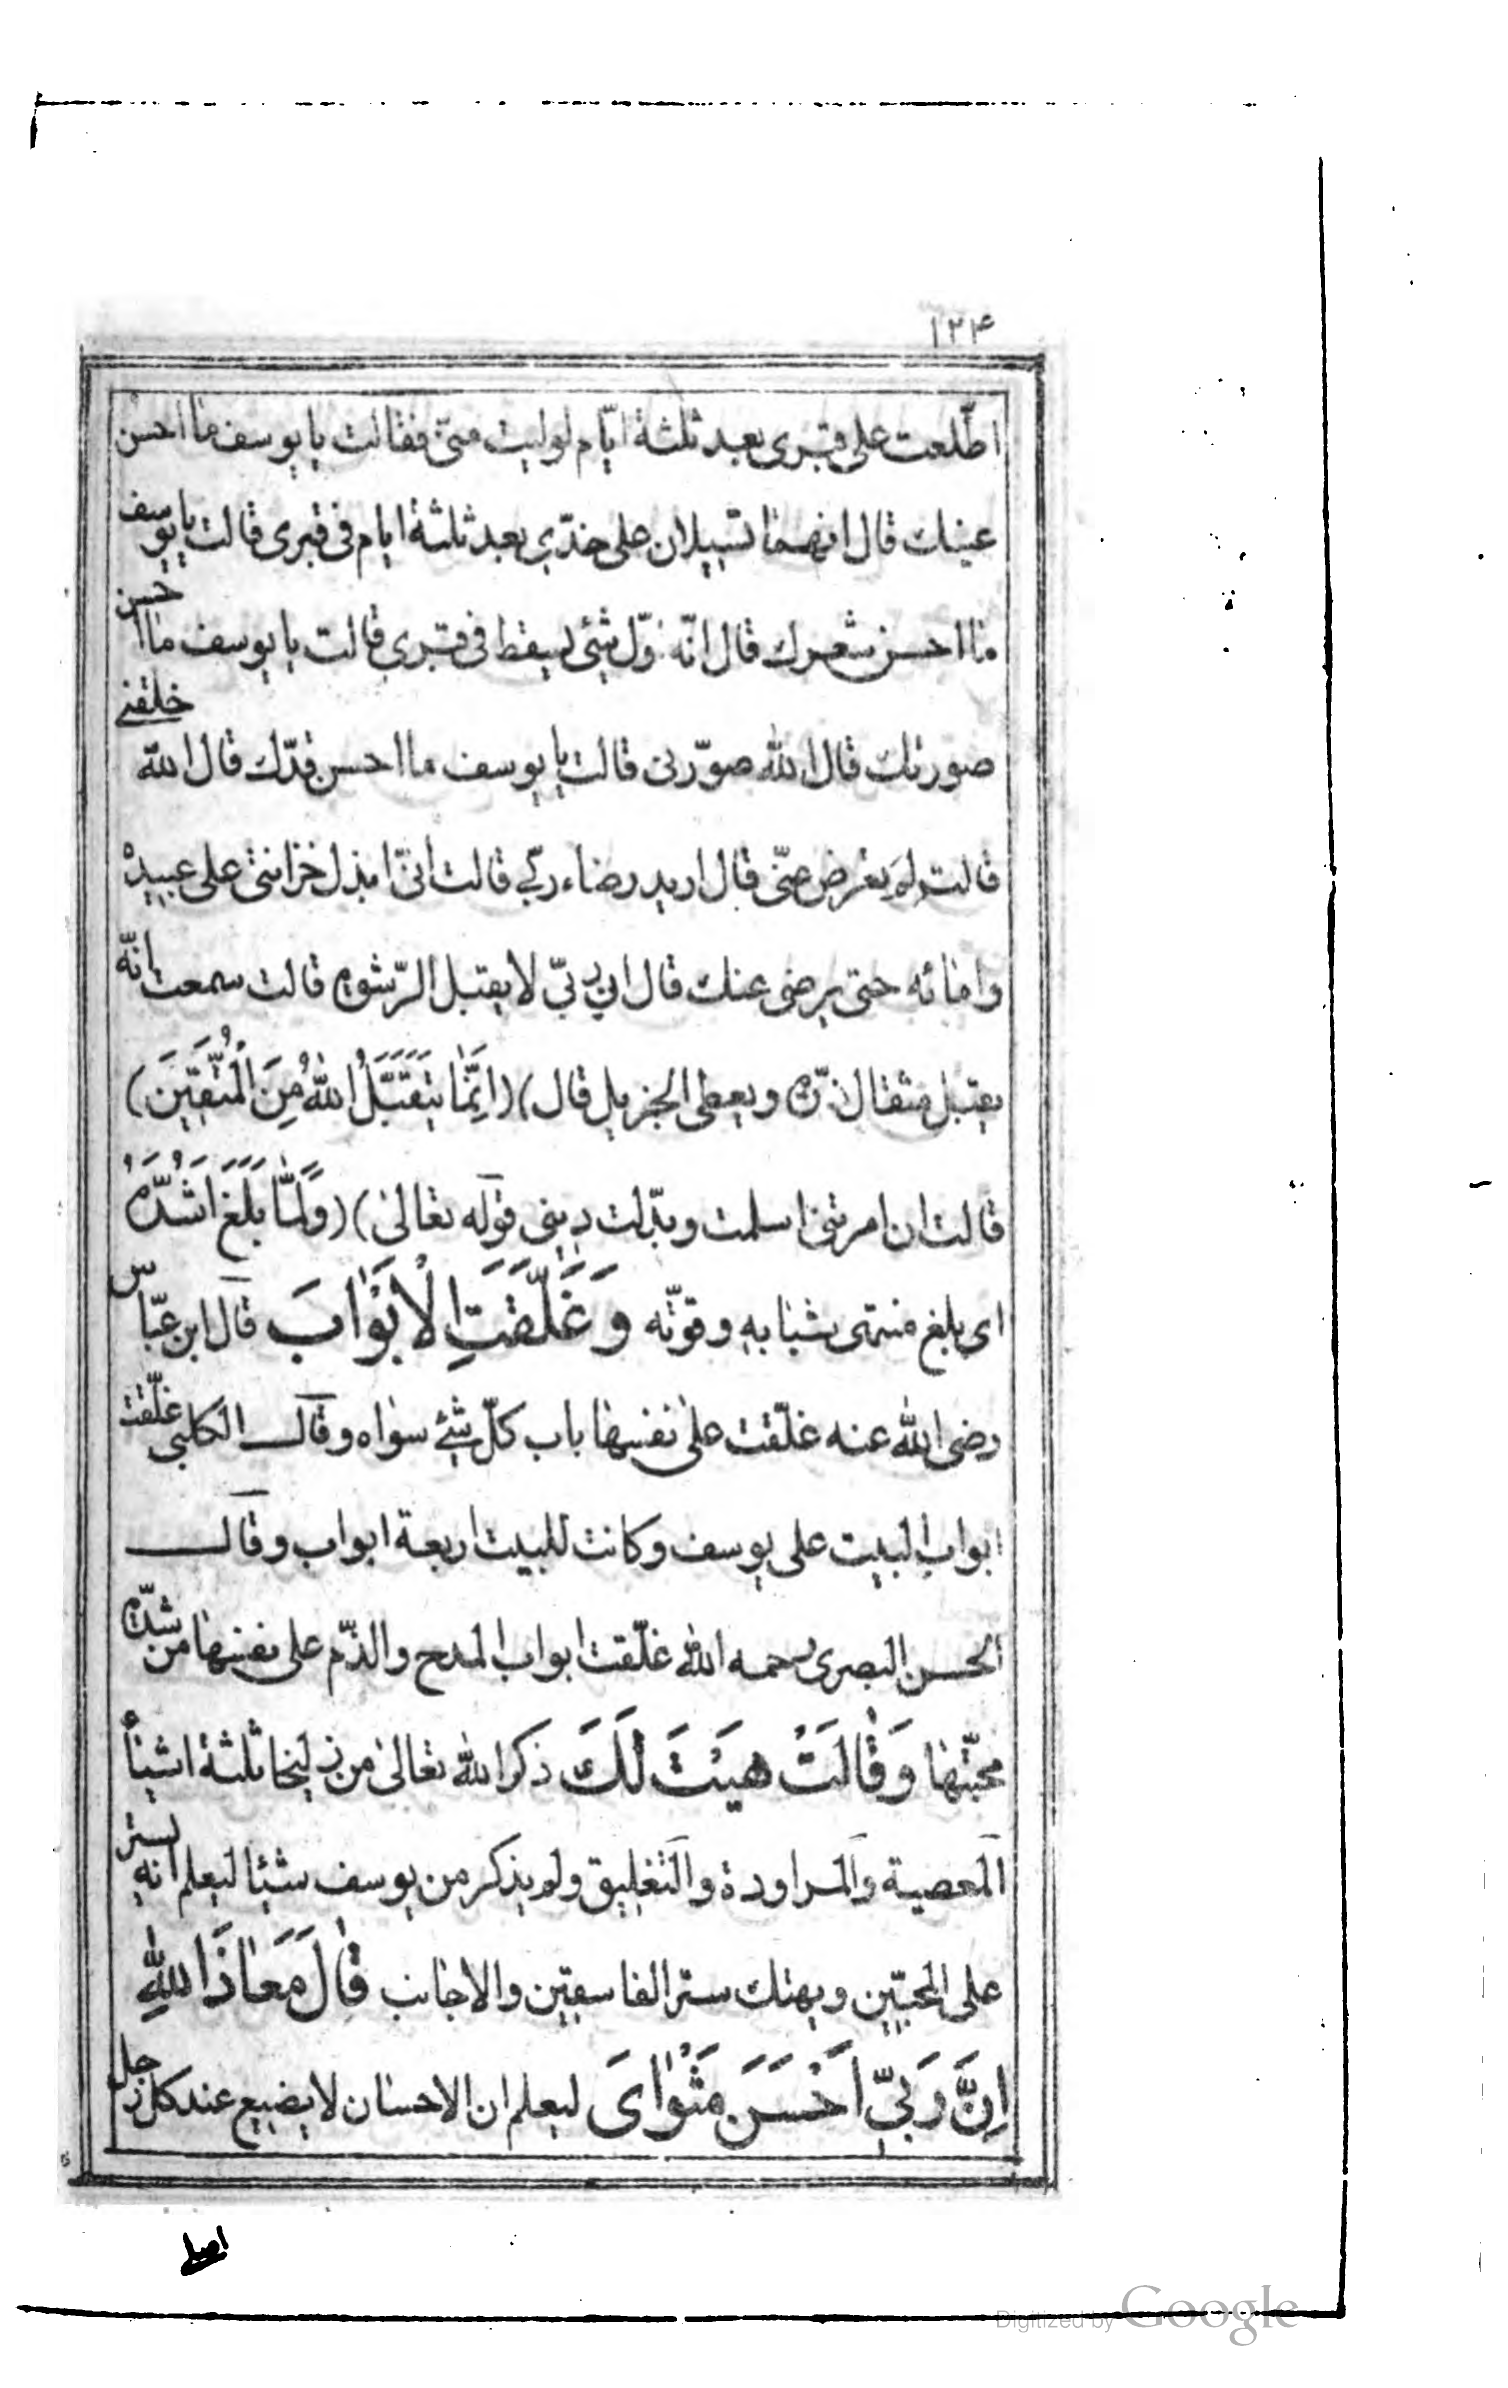 ١٢۴
اطّلعت على قبرى بعد ثلثة ايّام لوليت منّى فقالت يا يوسف ما احسن
عينك قال انهما تسيلان على خدّى بعد ثلثة ايام فى قبرى قالت يا يوسف
ما احسن شعرك قال انّه اوّل شئ يسقط فى قبرى قالت يا يوسف ما احسن
صورتك قال الله صوّرنى قالت يا يوسف ما احسن قدّك قال الله خلقنى
قالت لم تعرض عنّى قال اريد رضاء ربّى قالت انّى ابذل خزانتى على عبيده
وامائه حتى يرضى عنك قال ان ربّى لا يقبل الرّشوة قالت سمعت انّه
يقبل مثقال ذرّة ويعطى الجزيل قال) (اِنَّمَا يَتَقَبَّلُ اللهُ مِنَ الْمُتَّقِينَ)
قالت ان امرتنى اسلمت وبدّلت دينى قوله تعالى) (وَلَمَّا بَلَغَ اَشُدَّهُ
اى بلغ منتهى شبابه وقوّته وَغَلَّقَتِ الْاَبْوَابَ قال ابن عبّاس
رضى الله عنه غلّقت على نفسها باب كلّ شئ سواه وقال الكلبى غلّقت
ابواب البيت على يوسف وكانت للبيت اربعة ابواب وقال
الحسن البصرى رحمه الله غلّقت ابواب المدح والذّم على نفسها من شدّة
محبّتها وَقَالَتْ هَيْتَ لَكَ ذكر الله تعالى من زليخا ثلثة اشيأ
المعصية والمراودة والتغليق ولم يذكر من يوسف شيئا ليعلم انه يستر
على المحبّين ويهتك ستر الفاسقين والاجانب قَالَ مَعَاذَ اللهِ
اِنَّ رَبِّى اَحْسَنَ مَثْوَاىَ ليعلم ان الاحسان لا يضيع عند كل رجل
اصيل
Digitized by Google